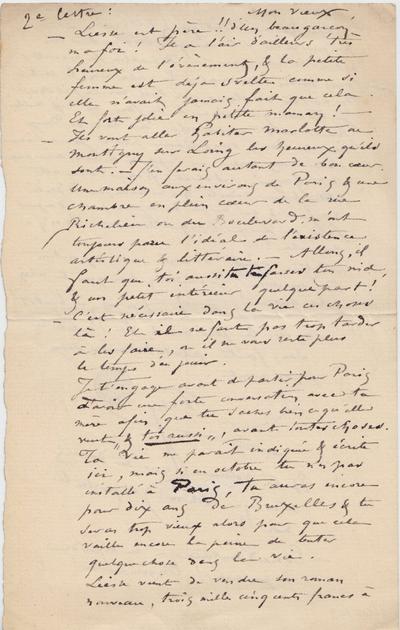 2e lettre : Mon vieux,
— Liesse est père !! d'un beau garçon,
ma foi ! Il a l'air d'ailleurs très
heureux de l'événement, & la petite
femme est déjà svelte comme si
elle n'avait jamais fait que cela.
Et fort jolie en petite maman ! —
— Ils vont aller habiter Marlotte ou
Montigny sur Loing les heureux qu'ils
sont. — J'en ferais autant de bon cœur.
Une maison aux environs de Paris & une
chambre en plein cœur de la rue
Richelieu ou du Boulevard, m'ont
toujours paru l'idéal de l'existence
artistique & littéraire — Allons, il
faut que toi aussi tu te fasses ton nid,
& un petit intérieur quelque part !
— C'est nécessaire dans la vie ces choses
là ! Et il ne faut pas trop tarder
à les faire, ou il ne vous reste plus
le temps d'en jouir.
Je t'engage avant de partir pour Paris
d'avoir une forte conversation avec ta
mère afin que tu saches bien ce qu'elle
veut & toi aussi, avant toutes choses.
Ta "Vie" me paraît indiquée & écrite
ici, mais si en octobre tu n'es pas
installé à Paris, tu auras encore
pour dix ans de Bruxelles & tu
seras trop vieux alors pour que cela
vaille encore la peine de tenter
quelque chose dans la vie.
Liesse vient de vendre son roman
nouveau, trois mille cinquents francs à